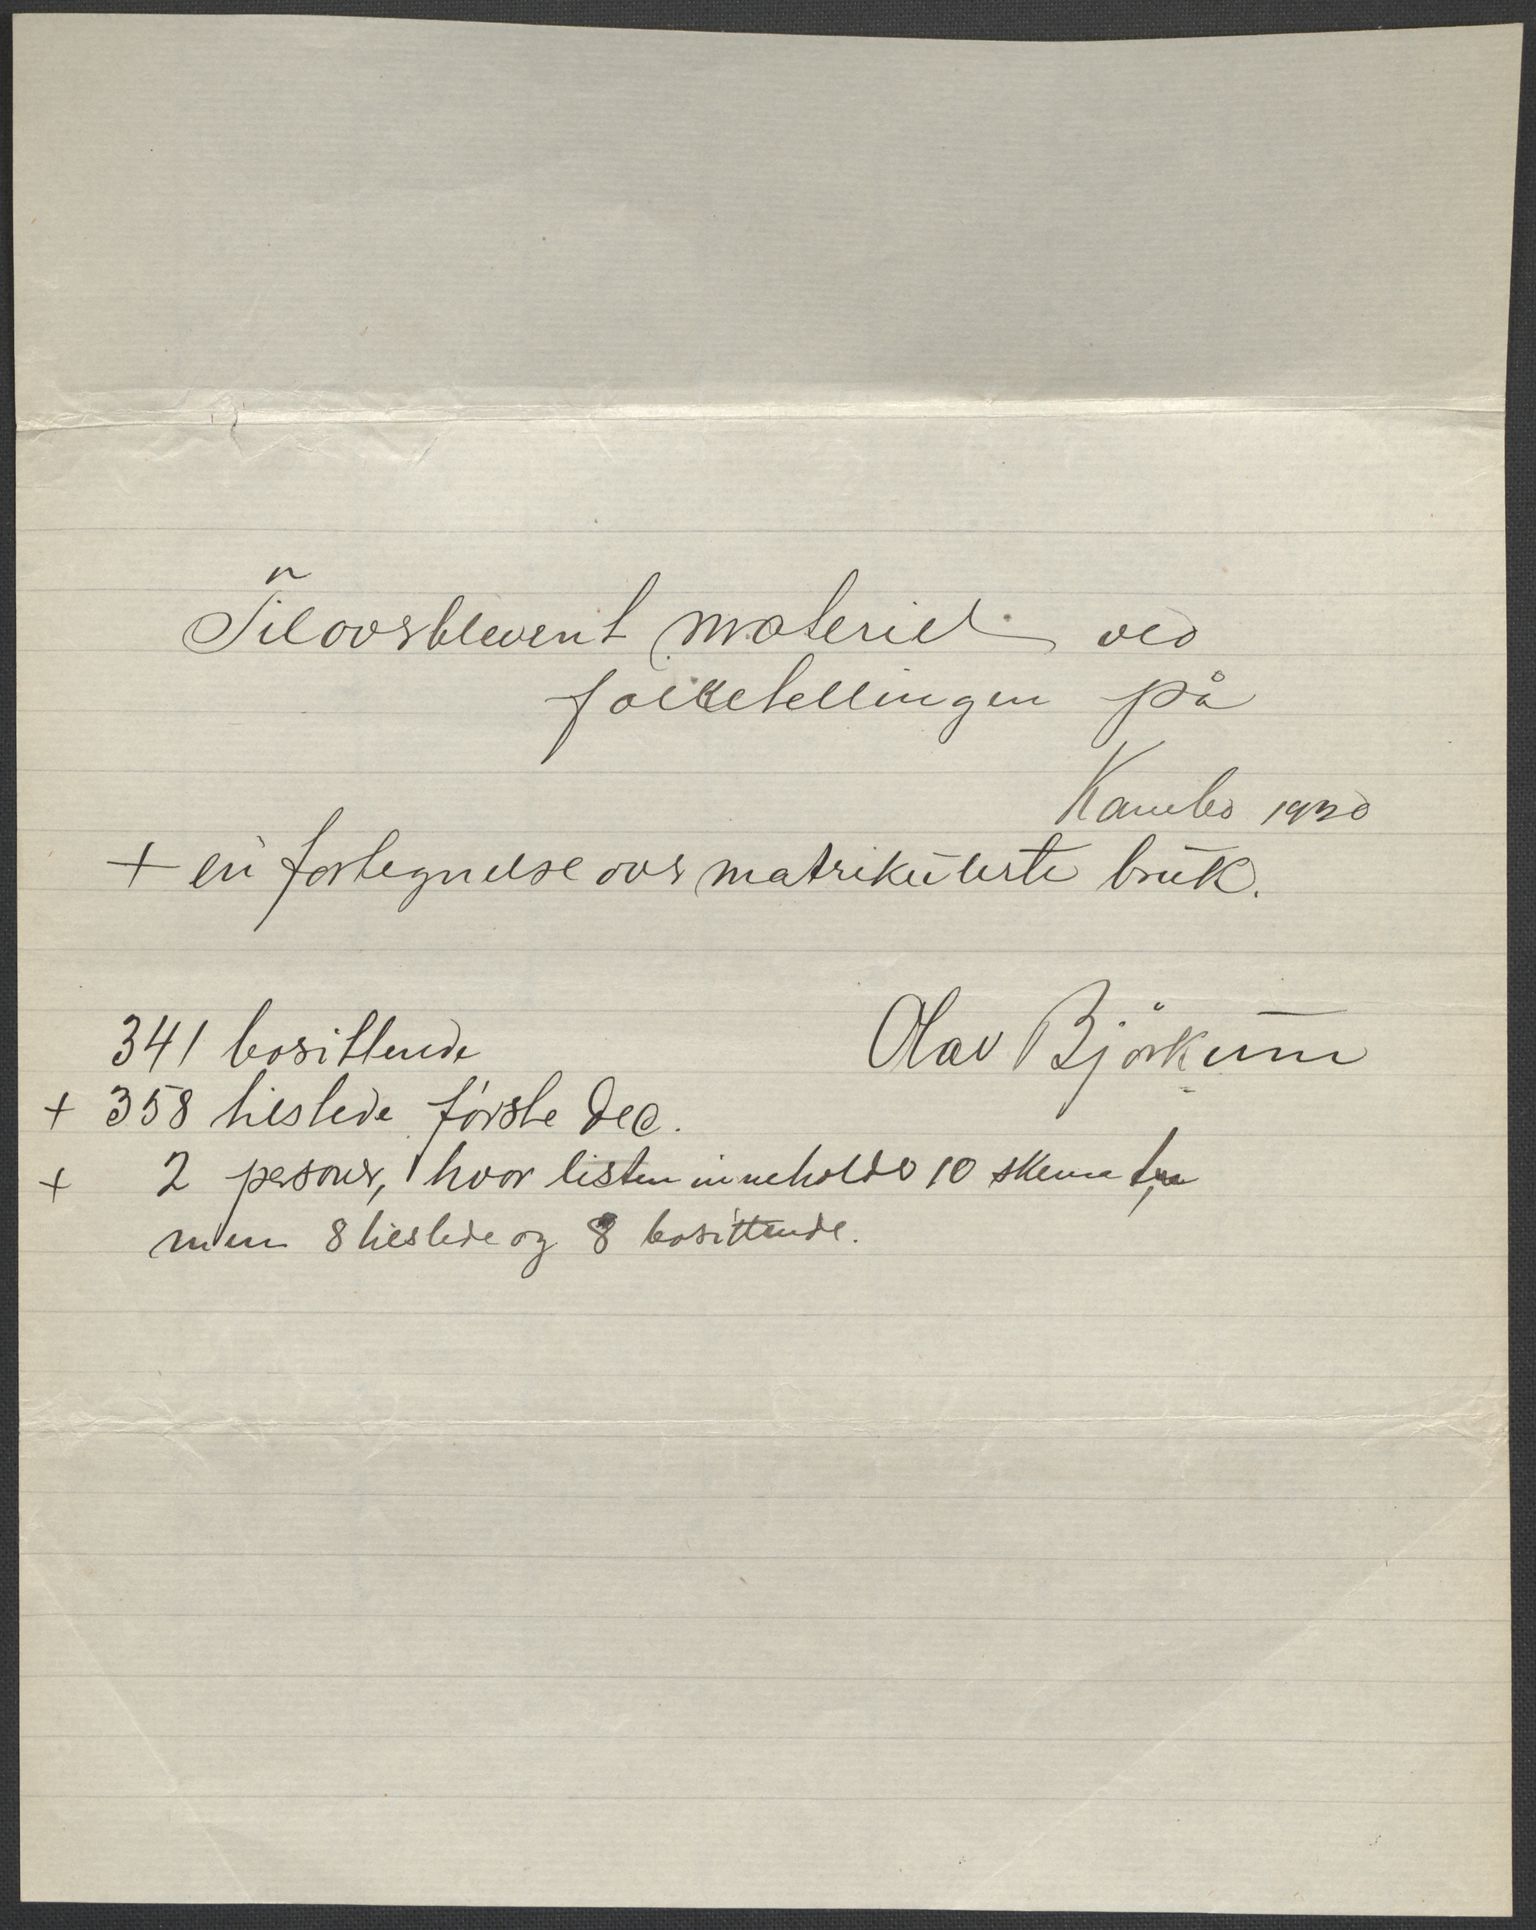 Tilovsblevent materiel ved
folketellingen på
Kambo 1920
+ en fortegnelse over matrikulerte bruk.
Olav Björkum
341 bosittende
+ 358 tilstede første Dec.
+ 2 personer, hvor listen inneholder 10 skema
men 8 tilstede og 8 bosittende.